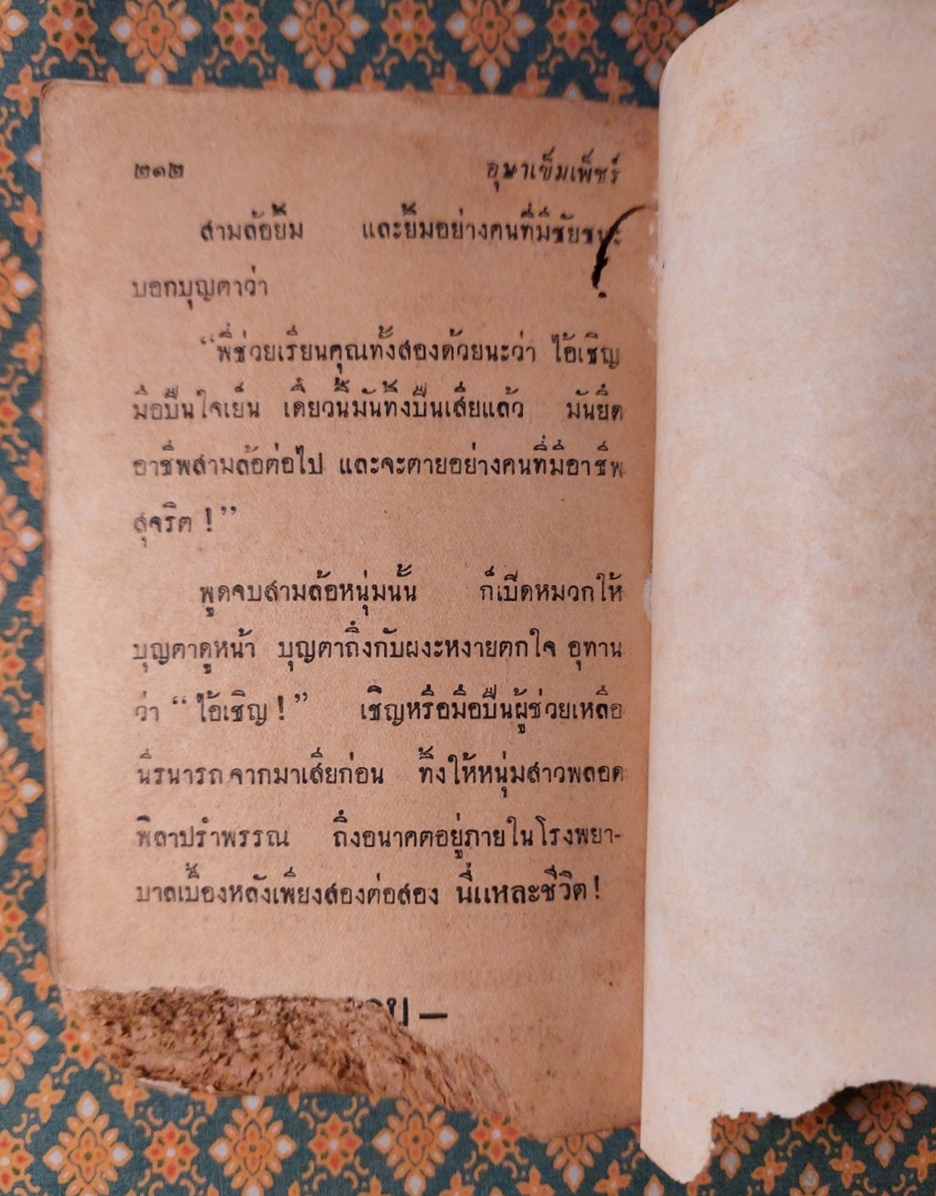 ๒๑๒ อุษาเข็มเพ็ชร์
สามล้อยิ้ม และยิ้มอย่างคนที่มีชัยชนะ
บอกบุญตาว่า
“พี่ช่วยเรียนคุณทั้งสองด้วยนะว่า ไอ้เชิญ
มือปืนใจเย็น เดี๋ยวนี้มันทิ้งปืนเสียแล้ว มันยึด
อาชีพสามล้อต่อไป และจะตายอย่างคนที่มีอาชีพ
สุจริต !”
พูดจบสามล้อหนุ่มนั้น ก็เปิดหมวกให้
บุญตาดูหน้า บุญตาถึงกับผงะหงายตกใจ อุทาน
ว่า “ ไอ้เชิญ ! ” เชิญหรือมือปืนผู้ช่วยเหลือ
นิรนารถจากมาเสียก่อน ทิ้งให้หนุ่มสาวพลอด
พิลาปรำพรรณ ถึงอนาคตอยู่ภายในโรงพยา-
บาลเบื้องหลังเพียงสองต่อสอง นี่แหละชีวิต !